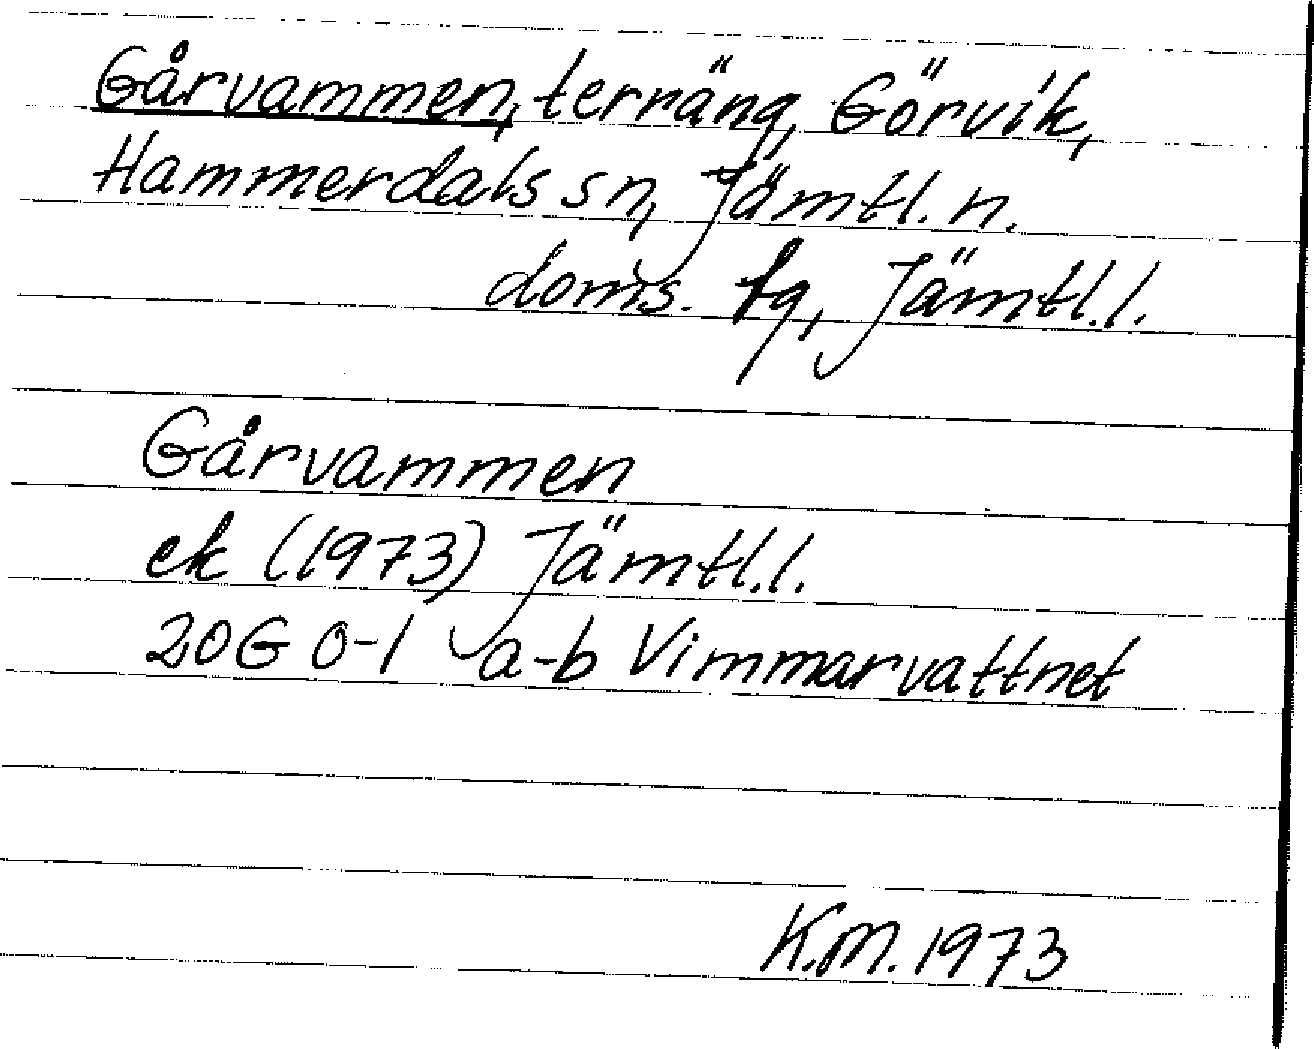 Gårvammen, terräng, Görvik,
Hammerdals sn, Jämtl. n.
doms. fg, Jämtl.l.
Gårvammen
ek (1973) Jämtl.l.
20G 0-1 a-b Vimmarvattnet
K.M. 1973